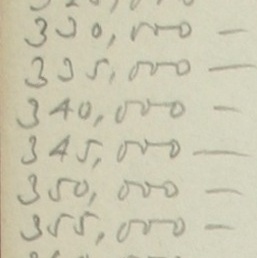 330,000 —
335,000 —
340,000 —
345,000 —
350,000 —
355,000 —